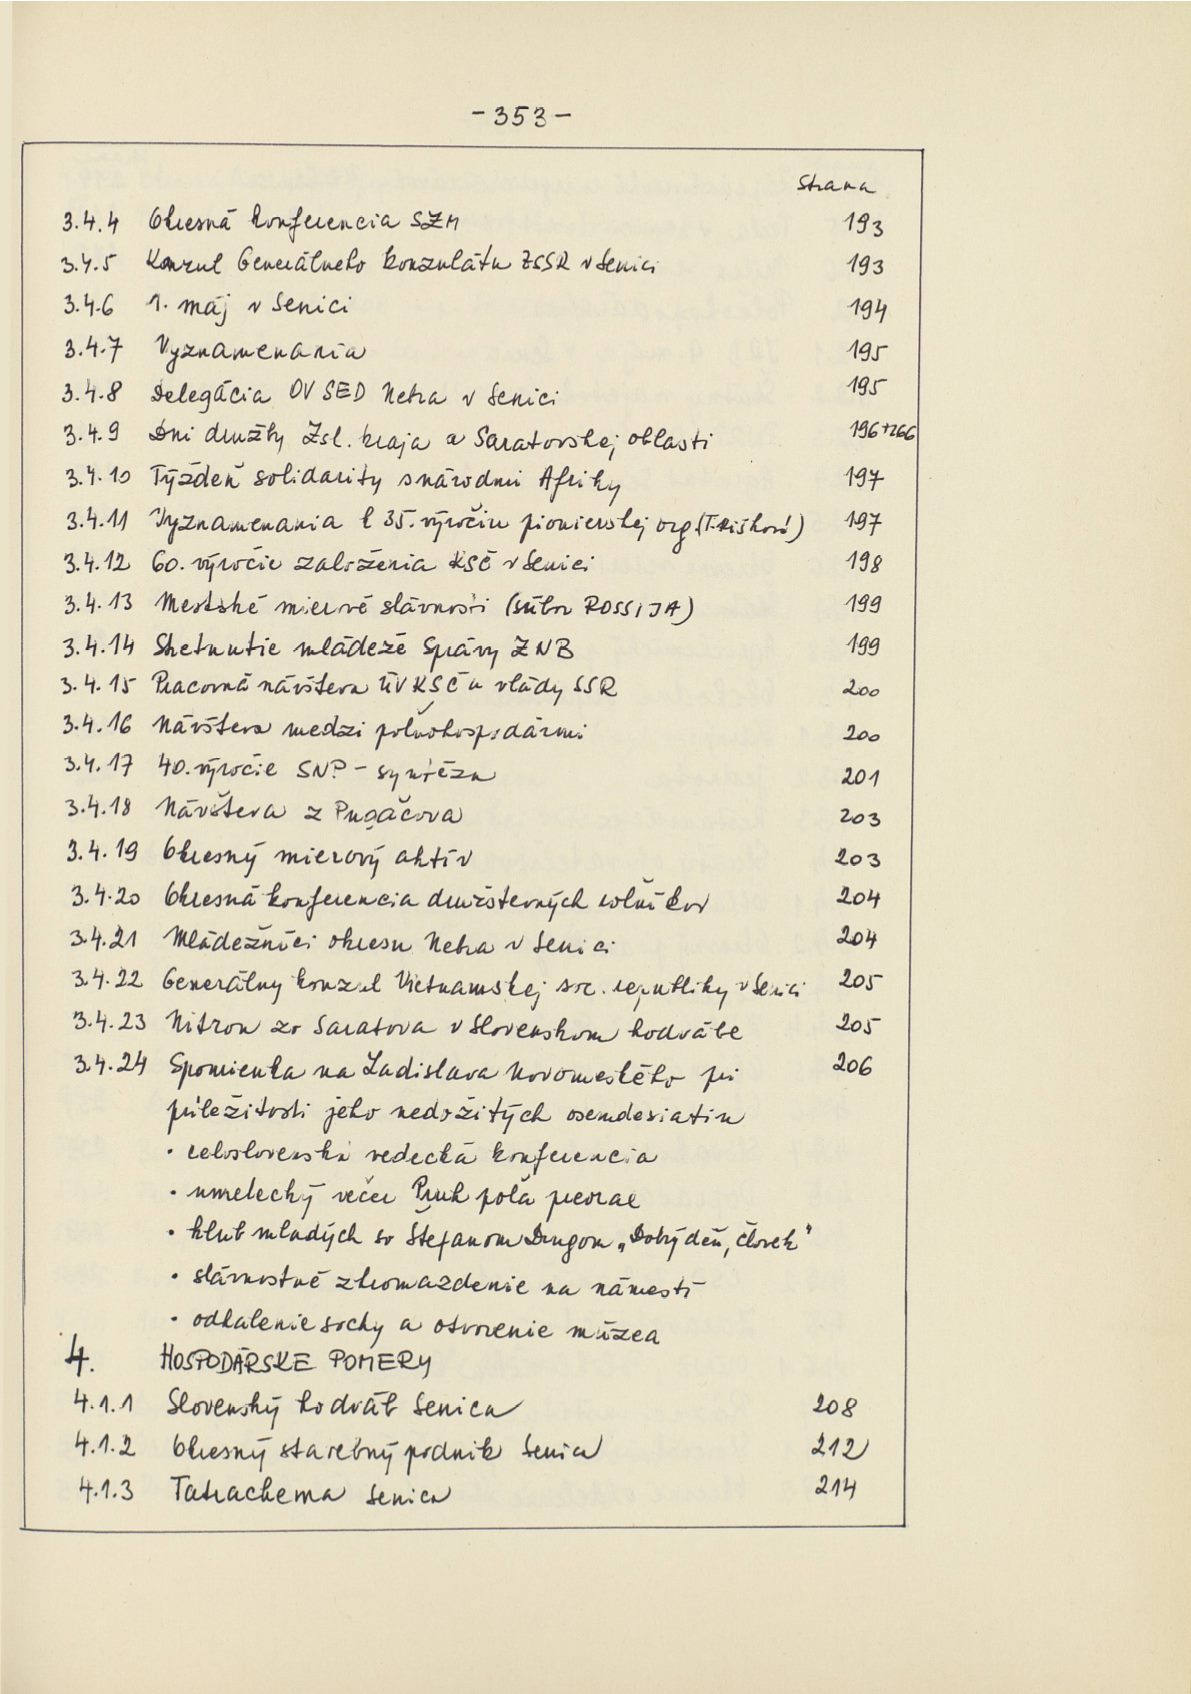 -353-
Strana
3.4.4 Okresná konferencia SZM 193
3.4.5 Konzul Generálneho konzulátu ZSSR v Senici 193
3.4.6 1. máj v Senici 194
3.4.7 Vyznamenania 195
3.4.8 Delegácia OV SED Nebra v Senici 195
3.4.9 Dni družby Zsl. kraja a Saratovskej oblasti 196+266
3.4.10 Týždeň solidarity s národmi Afriky 197
3.4.11 Vyznamenania k 35. výročiu pionierskej org. 197
3.4.12 60. výročie založenia KSČ v Senici 198
3.4.13 Mestské mierové slávnosti (súbor ROSSIJA) 199
3.4.14 Stretnutie mládeže Správy ZNB 199
3.4.15 Pracovná návšteva ÚV KSČ a vlády SSR 200
3.4.16 Návšteva medzi poľnohospodármi 200
3.4.17 40. výročie SNP - syntéza 201
3.4.18 Návšteva z Pugačova 203
3.4.19 Okresný mierový aktív 203
3.4.20 Okresná konferencia družstevných roľníkov 204
3.4.21 Mládežníci okresu Nebra v Senici 204
3.4.22 Generálny konzul Vietnamskej soc. republiky v Senici 205
3.4.23 Nitron zo Saratova v Slovenskom hodvábe 205
3.4.24 Spomienka na Ladislava Novomeského pri 206
príležitosti jeho nedožitých osemdesiatin
• celoslovenská vedecká konferencia
• umelecký večer Pruh poľa preorae
• klub mladých so Štefanom Drugom „Dobrý deň, človek"
• slávnostné zhromaždenie na námestí
• odhalenie sochy a otvorenie múzea
4. HOSPODÁRSKE POMERY
4.1.1 Slovenský hodváb Senica 208
4.1.2 Okresný stavebný podnik Senica 212
4.1.3 Tatrachema Senica 214